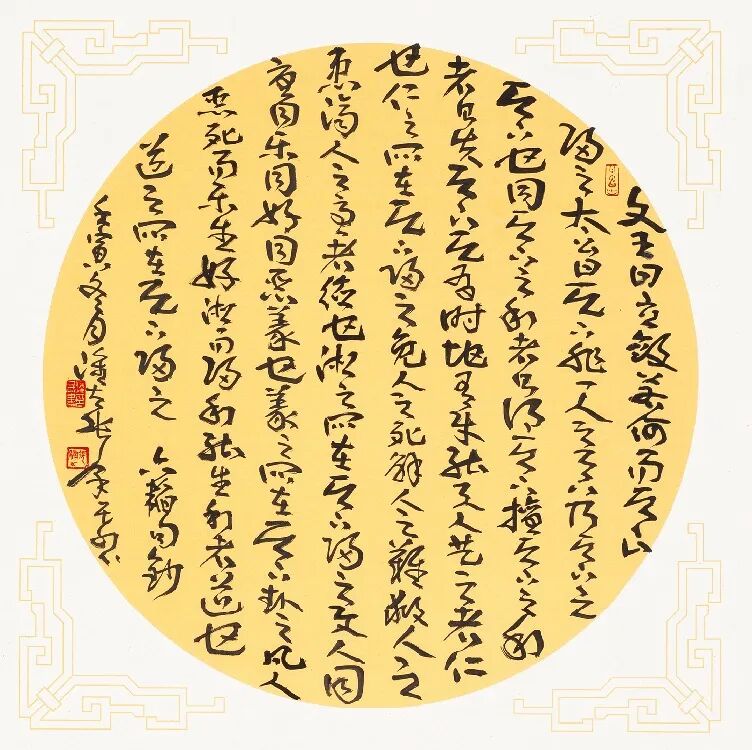 文王曰立斂若何而天下
歸之太公曰天下非一人之天下乃天下之
天下也同天下之利者則得天下擅天下之利
者則失天下天有時地有財能與人共之者仁
也仁之所在天下歸之免人之死解人之難救人之
患濟人之急者德也德之所在天下歸之與人同
憂同樂同好同惡義也義之所在天下赴之凡人
惡死而樂生好德而歸利能生利者道也
道之所在天下歸之 六韜句鈔
壬寅冬月潘